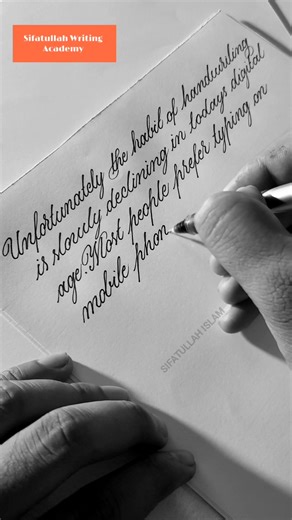 Sifatullah Writing
Academy
Unfortunately the habit of handwriting
is slowly declining in todays digital
age. Most people prefer typing on
mobile phon
SIFATULLAH ISLAM